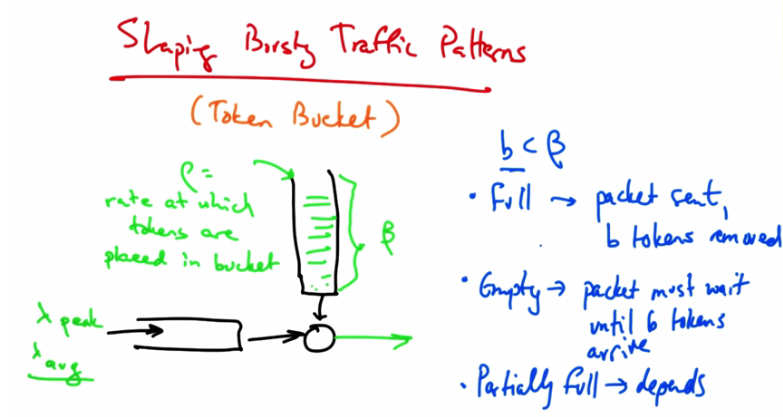 Shaping Bursty Traffic Patterns
(Token Bucket)
ρ =
rate at which
tokens are
placed in bucket
β
λ peak
λ avg
b < β
• Full → packet sent,
b tokens removed
• Empty → packet must wait
until b tokens
arrive
• Partially full → depends